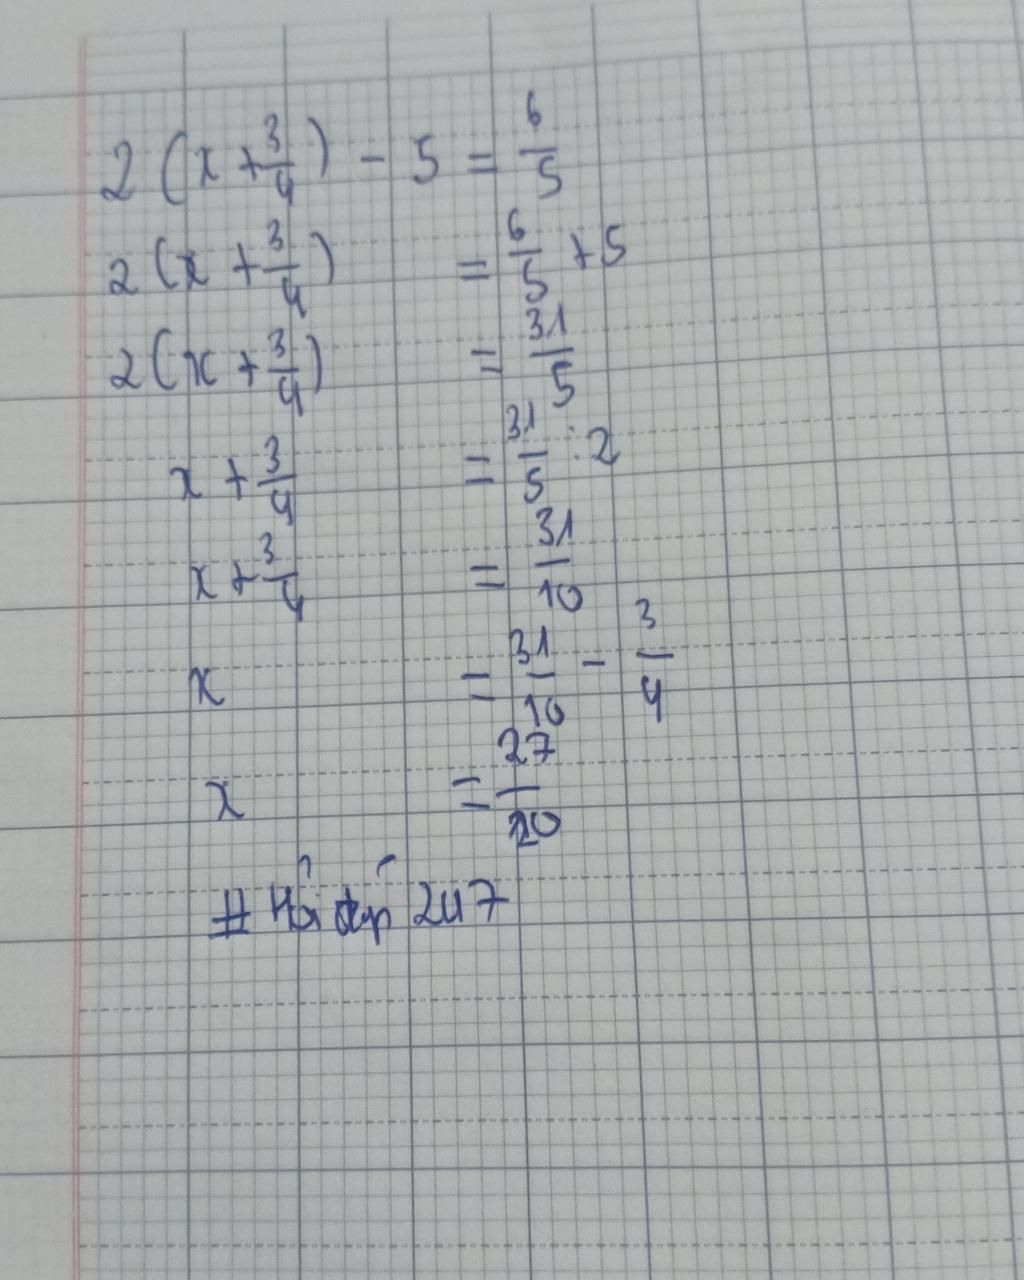 2(x + 3/4) - 5 = 6/5
2(x + 3/4) = 6/5 + 5
2(x + 3/4) = 31/5
x + 3/4 = 31/5 : 2
x + 3/4 = 31/10
x = 31/10 - 3/4
x = 27/20
# Hỏi đáp 247